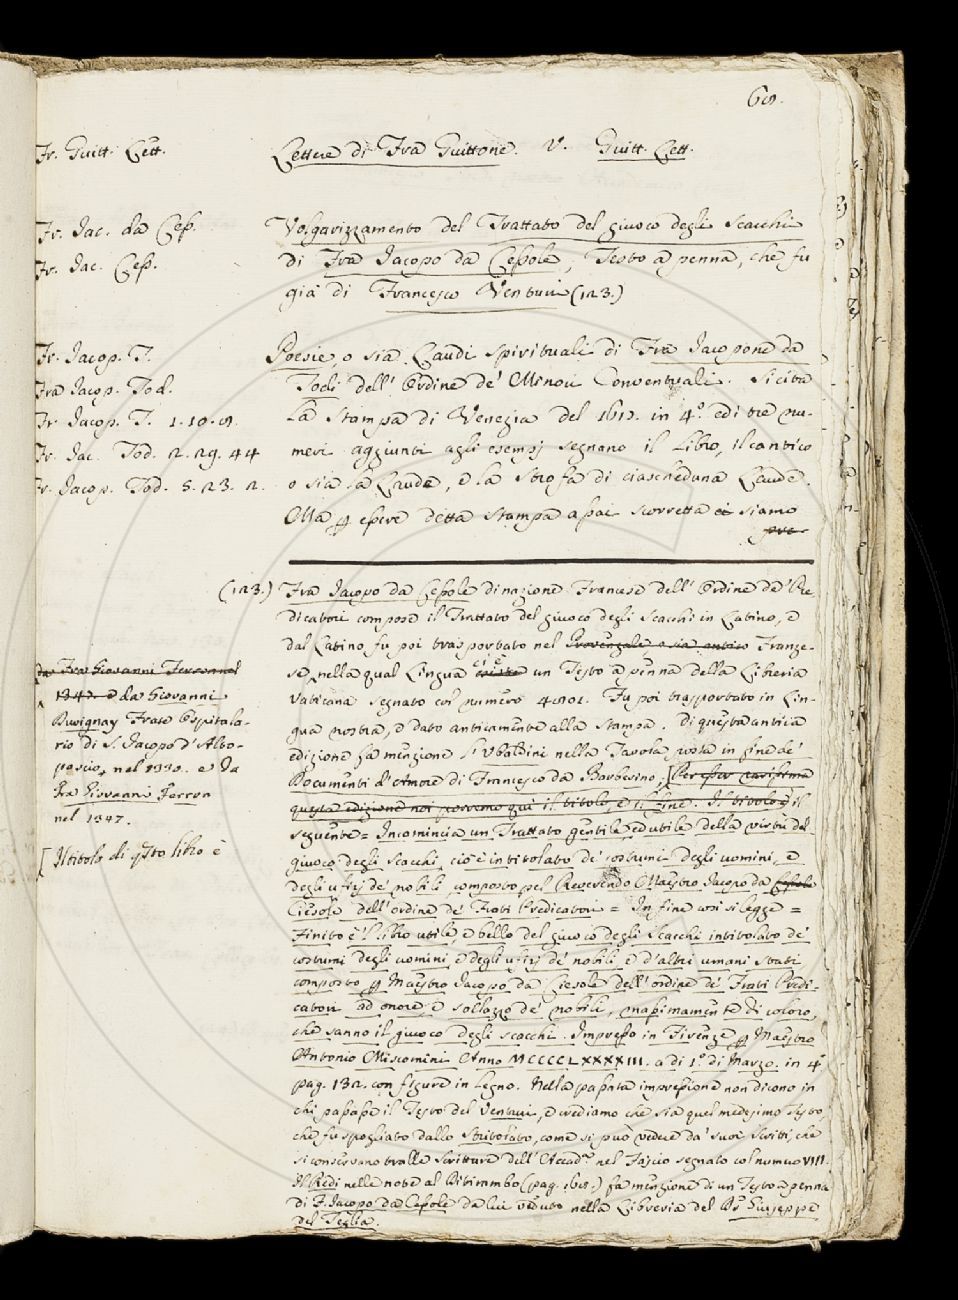 69.
Fr. Guitt. Lett.
Lettere di Fra Guittone. V. Guitt. Lett.
Fr. Iac. da Ceſs.
Fr. Iac. Ceſs.
Volgarizzamento del Trattato del giuoco degli Scacchi
di Fra Iacopo da Ceſsole, Testo a penna, che fu
già di Francesco Venturi (123.)
Fr. Iacop. T.
Fra Iacop. Tod.
Fr. Iacop. T. 1. 10. 9.
Fr. Iac. Tod. 2. 29. 44
Fr. Iacop. Tod. 5. 23. 2.
Poesie, o sia Laudi spirituali di Fra Iacopone da
Todi dell' Ordine de' Minori Conventuali. Si cita
la Stampa di Venezia del 1617. in 4.° ed i tre nu-
meri aggiunti agli esempj segnano il Libro, il cantico
o sia la Laude, e la Strofa di ciascheduna Laude.
Ma ꝑ eſsere detta Stampa aſsai scorretta ci siamo
pre-
(123.) Fra Iacopo da Ceſsole di nazione Franzese dell' Ordine de' Pre-
dicatori compose il Trattato del giuoco degli Scacchi in Latino, e
dal Latino fu poi trasportato nel Provenzale o sia antico Franze-
se, nella qual Lingua ci è un Testo a penna della Libreria
Vaticana segnato col numero 4901. Fu poi trasportato in Lin-
gua nostra, e dato anticamente alla Stampa. Di questa antica
edizione fa menzione l'Ubaldini nella Tavola posta in fine de'
Documenti d'Amore di Francesco da Barberino, [Per eſser rarissima
questa edizione noi porremo qui il titolo, e il fine. Il titolo è il
seguente = Incomincia un Trattato gentile, ed utile della virtù del
giuoco degli Scacchi, cioè intitolato de' costumi degli uomini, e
degli ufizj de' nobili, composto pel Reverendo Maestro Iacopo da Ceſsole
Ciesole dell' ordine de' Frati Predicatori = In fine così si legge =
Finito è 'l libro utile, e bello del giuoco degli Scacchi intitolato de'
costumi degli uomini, e degli ufizj de' nobili, e d'altri umani stati
composto ꝑ Maestro Iacopo da Ciesole dell' ordine de' Frati Predi-
catori ad onore, e sollazzo de' nobili, maſsimamente di coloro,
che sanno il giuoco degli scacchi. Impreſso in Firenze ꝑ Maestro
Antonio Miscomini Anno MCCCCLXXXXIII. a dì 1.° di Marzo. in 4.°
pag. 132. con figure in legno. Nella paſsata impreſsione non dicono in
chi paſsaſse il Testo del Venturi, e crediamo che sia quel medesimo Testo,
che fu spogliato dallo Stritolato, come si può vedere da' suoi Scritti, che
si conservano tralle Scritture dell' Accad.ª nel Fascio segnato col numero VIII.
Il Redi nelle note al Ditirambo (pag. 168.) fa menzione di un Testo a penna
di F. Iacopo da Ceſsole da lui veduto nella Libreria del Bī Giuseppe
del Teglia.
da Fra Giovanni Ferron nel
1347. e da Giovanni
Duvignay Frate Ospitala-
rio di S. Iacopo d'Alto-
pascio, nel 1330. e da
Fra Giovanni Ferron
nel 1347.
[Il titolo di qſto libro è